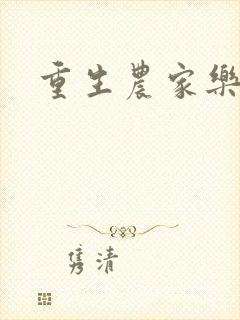 重生農家樂
隽清